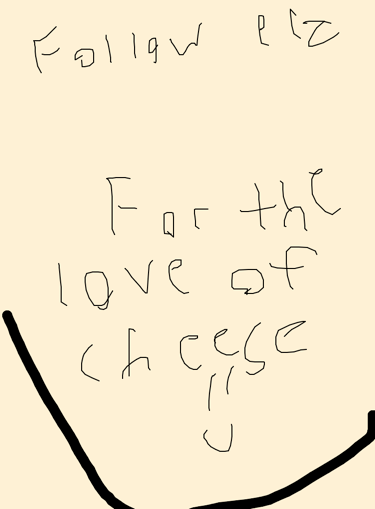 Follow plz
For the
love of
cheese